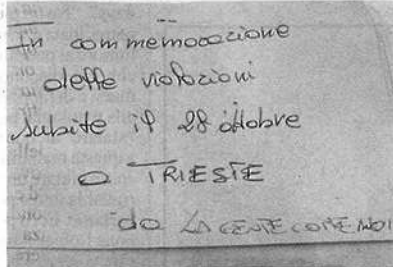 In commemorazione
delle violazioni
subite il 28 ottobre
a TRIESTE
da LA GENTE COME NOI